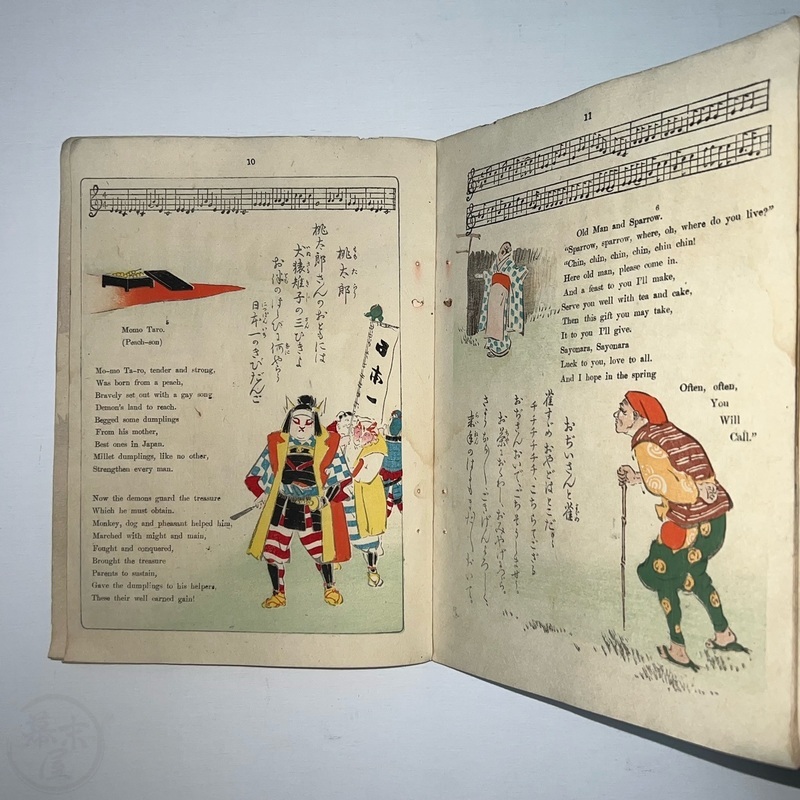 10
桃太郎
桃太郎さんのおともには
犬猿雉子の三びきよ
お傢のほしひに何やら
日本一のきびだんご
日本一
Momo Taro.
(Peach-son)
Mo-mo Ta-ro, tender and strong,
Was born from a peach,
Bravely set out with a gay song
Demon's land to reach.
Begged some dumplings
From his mother,
Best ones in Japan.
Millet dumplings, like no other,
Strengthen every man.
Now the demons guard the treasure
Which he must obtain.
Monkey, dog and pheasant helped him,
Marched with might and main,
Fought and conquered,
Brought the treasure
Parents to sustain,
Gave the dumplings to his helpers,
These their well earned gain!
11
6
Old Man and Sparrow.
"Sparrow, sparrow, where, oh, where do you live?"
"Chin, chin, chin, chin, chin chin!
Here old man, please come in.
And a feast to you I'll make,
Serve you well with tea and cake,
Then this gift you may take,
It to you I'll give.
Sayonara, Sayonara
Luck to you, love to all.
And I hope in the spring
Often, often,
You
Will
Call."
おぢいさんと雀
雀すゞめおやどはどこだ
チチチチチチこちらでござる
おぢさんおいで
幕末屋